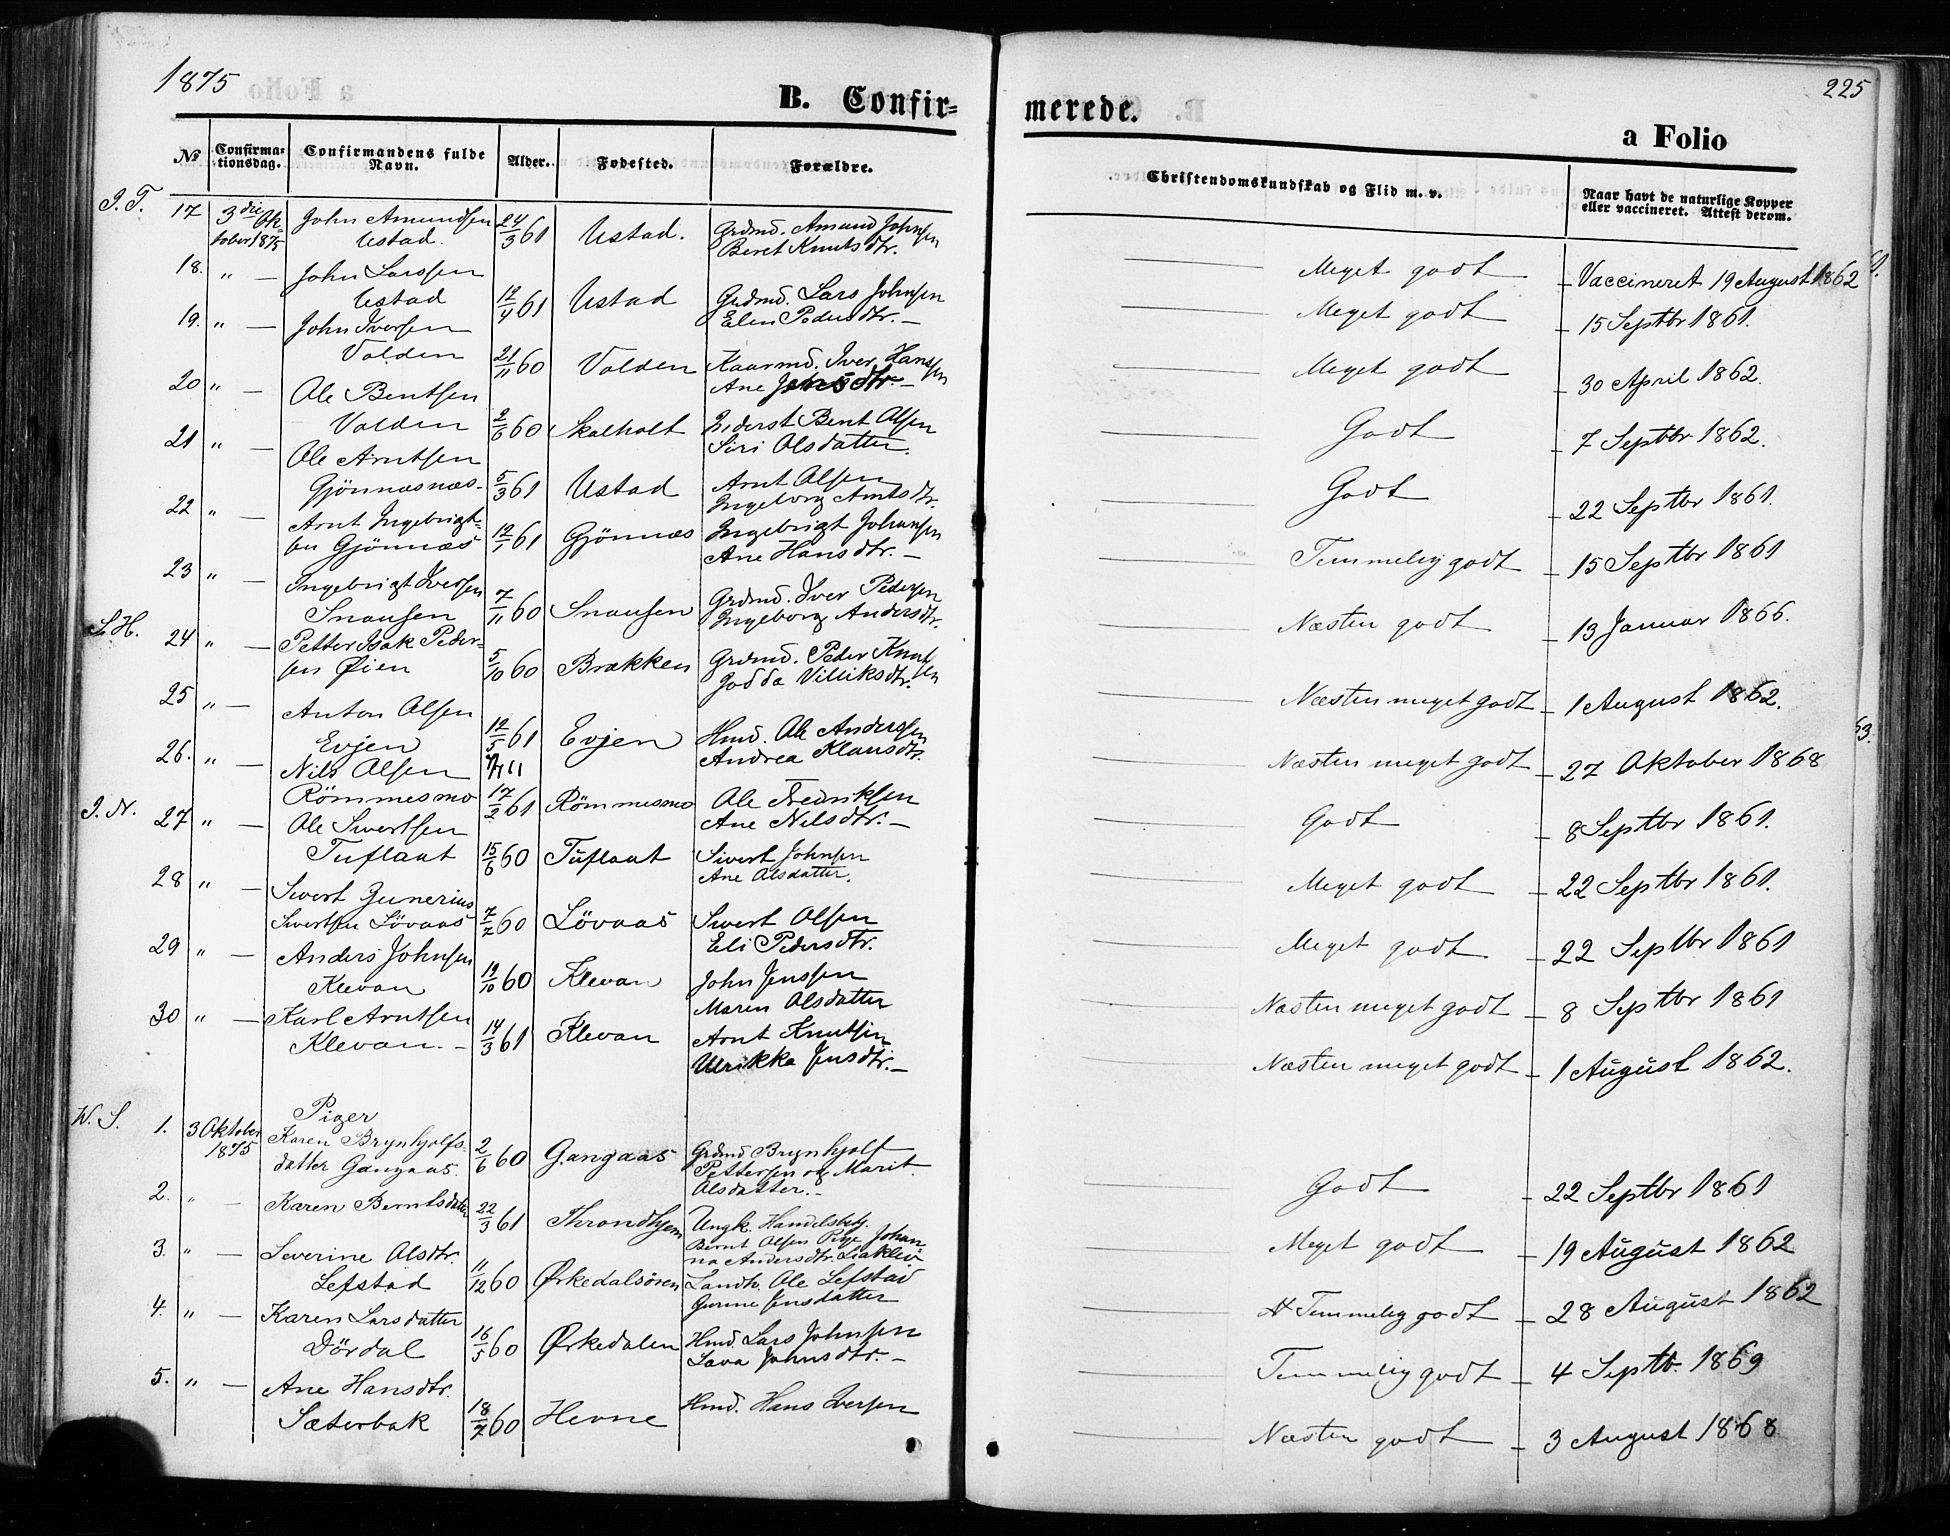 1875
B. Confir=
№
Confirma-
tionsdag.
Confirmandens fulde
Navn.
Alder.
Fødested.
Forældre.
I. T. 17 3die Ok-
tober 1875 John Amundsen
Ustad. 24/3 61 Ustad. Grdmd. Amund Johnsen
Beret Knutsdtr.
18. " — John Larssen
Ustad 12/4 61 Ustad Grdmd. Lars Johnsen
Elen Pedersdtr. —
19. " — John Iversen
Volden 21/11 60 Volden Kaarmd. Iver Hanssen
Ane Jensdtr. —
20 " — Ole Bentsen
Volden 2/6 60 Skalholt Bent Olsen
Siri Olsdatter.
21 " — Ole Arntsen
Gjönnæsnæs. 5/3 61 Ustad Arnt Olsen
Ingeborg Arntsdtr.
22 " — Arnt Ingebrigt-
sen Gjönnæs 12/1 61 Gjönnæs Ingebrigt Johansen
Ane Hansdtr. —
23 " — Ingebrigt Iversen
Snausen 7/11 60 Snausen Grdmd. Iver Pedersen
Ingeborg Andersdtr.
S. H. 24 " — Petter Isak Peder-
sen Øien 5/10 60 Brækken Grdmd. Peder Knutsen
Villiksdtr.
25 " — Anton Olsen
Evjen 12/5 61 Evjen Hmd. Ole Andersen
Andrea Klausdtr.
26. " — Nils Olsen
Römmesmo 17/2 61 Römmesmo Ole Fredriksen
Ane Nilsdtr. —
I. N. 27 " — Ole Sivertsen
Tuflaat 15/6 60 Tuflaat Sivert Johnsen
Ane Olsdatter.
28 " — Sivert Gunerius
Sivertsen Lövaas 7/7 60 Lövaas Sivert Olsen
Eli Pedersdtr.
29 " — Anders Johnsen
Klevan 19/10 60 Klevan John Jenssen
Maren Olsdatter
30 " — Karl Arntsen
Klevan. — 14/3 61 Klevan Arnt Knutsen
Ulrikka Jensdtr. —
Piger
W. S. 1. 3 Oktober
1875 Karen Brynhjolfs-
datter Gangaas. 2/6 60 Gangaas Grdmd Brynhjolf
Pettersen og Marit
Olsdatter. —
2. " — Karen Berntsdatter 22/3 61 Throndhjem Ungk. Handelsbetj.
Bernt Olsen Pige Johan
na Andersdtr.
3. " — Severine Olsdtr.
Lefstad 11/12 60 Ørkedalsören Landh. Ole Lefstad
Gurine Jensdatter
4. " — Karen Larsdatter
Dördal 16/5 60 Ørkedalen Hmd. Lars Johnsen
Lava Johnsdtr. —
5. " — Ane Hansdtr.
Sæterbak 18/7 60 Hevne Hmd. Hans Iversen
225
merede.
a Folio
Christendomskundskab og Flid m. v.
Naar havt de naturlige Kopper
eller vaccineret. Attest derom.
Meget godt — Vaccineret 19 August 1862
Meget godt — 15 Septbr 1861.
Meget godt — 30 April 1862.
Godt — 7 Septbr 1862.
Godt — 22 Septbr 1861.
Temmelig godt — 15 Septbr 1861
Næsten godt — 13 Januar 1866.
Næsten meget godt — 1 August 1862.
Næsten meget godt — 27 Oktober 1868
Godt — 8 Septbr 1861.
Meget godt — 22 Septbr 1861.
Meget godt — 22 Septbr 1861
Næsten meget godt — 8 Septbr 1861
Næsten meget godt — 1 August 1862.
Godt — 22 Septbr 1861
Meget godt — 19 August 1862
Temmelig godt — 28 August 1862
Temmelig godt — 4 Septb. 1869
Næsten godt — 3 August 1868